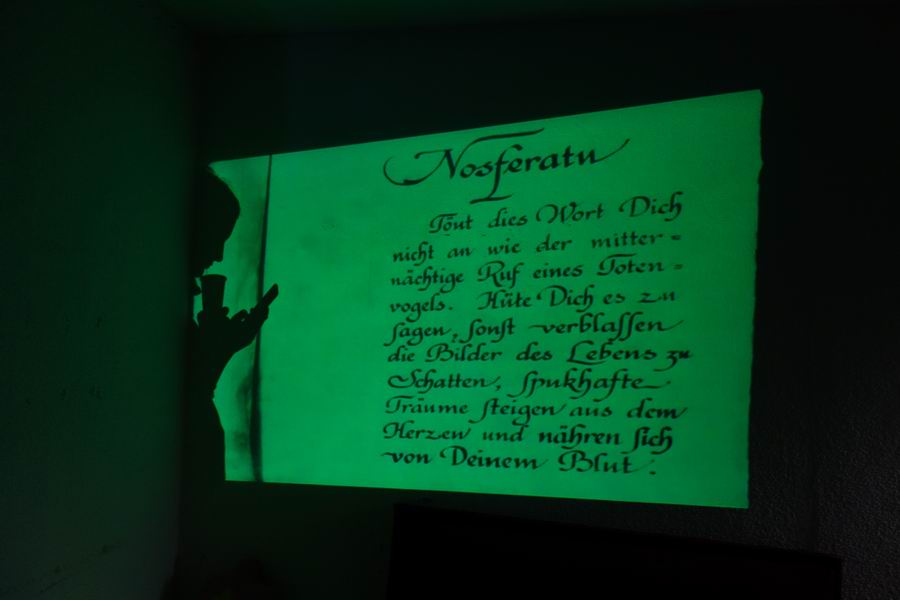 Nosferatu
Tönt dies Wort Dich
nicht an wie der mitter=
nächtige Ruf eines Toten=
vogels. Hüte Dich es zu
sagen, sonst verblassen
die Bilder des Lebens zu
Schatten, spukhafte
Träume steigen aus dem
Herzen und nähren sich
von Deinem Blut.